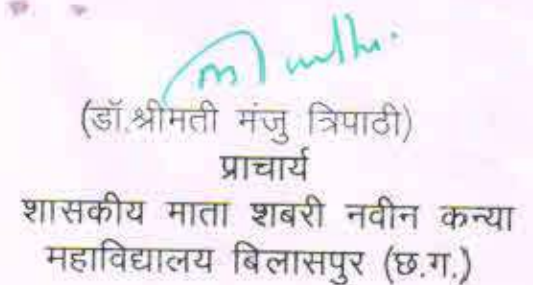 (डॉ.श्रीमती मंजु त्रिपाठी)
प्राचार्य
शासकीय माता शबरी नवीन कन्या
महाविद्यालय बिलासपुर (छ.ग.)